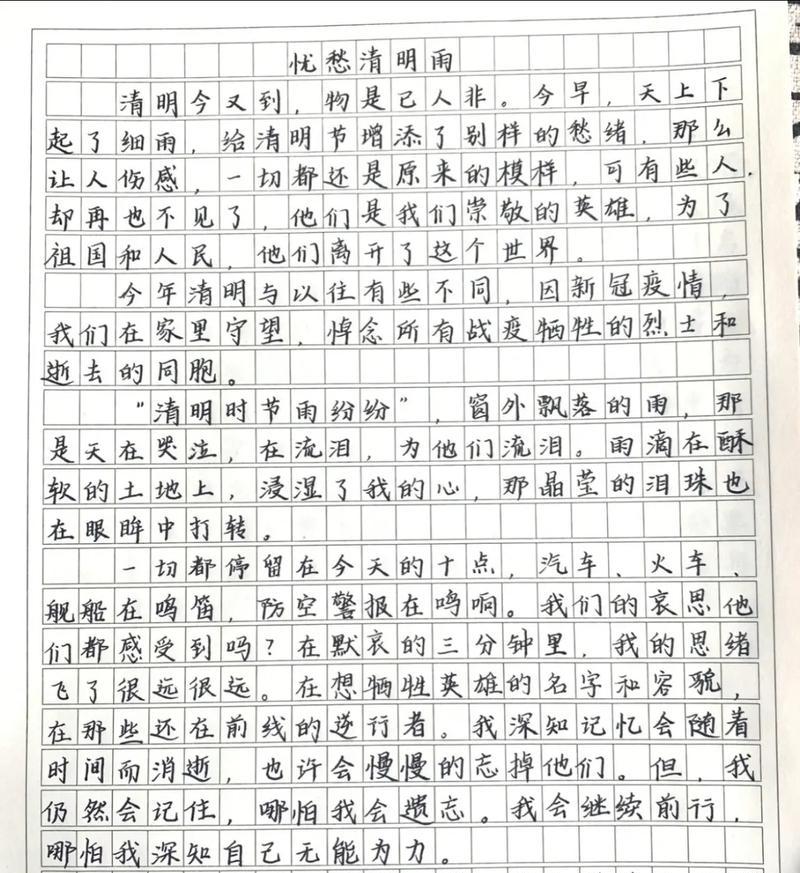 忧愁清明雨
清明今又到，物是已人非。今早，天上下
起了细雨，给清明节增添了别样的愁绪，那么
让人伤感，一切都还是原来的模样，可有些人，
却再也不见了，他们是我们崇敬的英雄，为了
祖国和人民，他们离开了这个世界。
今年清明与以往有些不同，因新冠疫情，
我们在家里守望，悼念所有战疫牺牲的烈士和
逝去的同胞。
“清明时节雨纷纷”，窗外飘落的雨，那
是天在哭泣，在流泪，为他们流泪。雨滴在酥
软的土地上，浸湿了我的心，那晶莹的泪珠也
在眼眸中打转。
一切都停留在今天的十点，汽车、火车、
舰船在鸣笛，防空警报在鸣响。我们的哀思他
们都感受到吗？在默哀的三分钟里，我的思绪
飞了很远很远。在想牺牲英雄的名字和容貌，
在那些还在前线的逆行者。我深知记忆会随着
时间而消逝，也许会慢慢的忘掉他们。但，我
仍然会记住，哪怕我会遗忘。我会继续前行，
哪怕我深知自己无能为力。